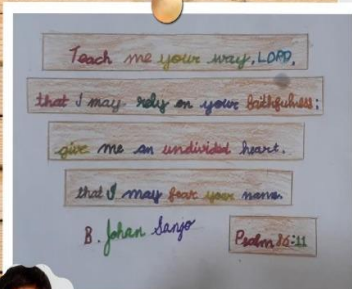 Teach me your way, LORD,
that I may rely on your faithfulness;
give me an undivided heart,
that I may fear your name.
B. Johan Sanjo
Psalm 86:11